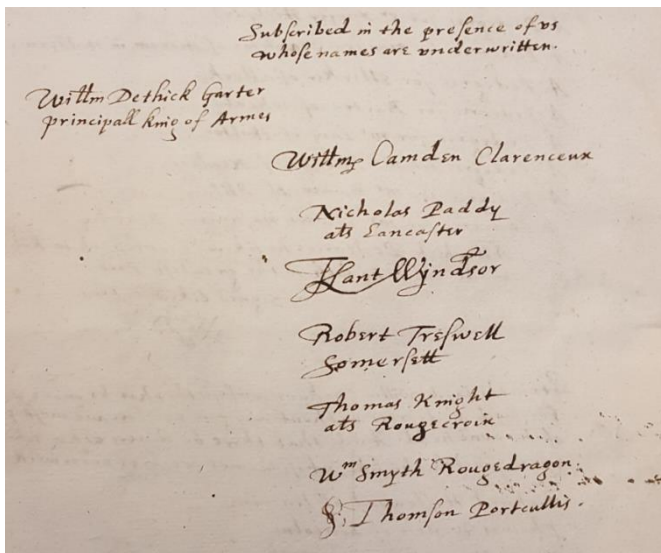 Subscribed in the presence of vs
whose names are vnderwritten.
Willm Dethick Garter
principall king of Armes
Willm Camden Clarenceux
Nicholas Paddy
als Lancaster
Lant Wyndsor
Robert Treswell
Somersett
Thomas Knight
als Rougecroix
Wm Smyth Rougedragon
Thomson Portcullis.